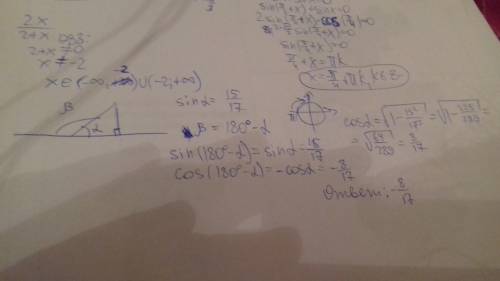 2x
2+x ОДЗ:
2+x ≠ 0
x ≠ -2
x∈(-∞, -2)∪(-2; +∞)
sin(π/2+x)+sinx=0
2 sin(π/4+x) cos(π/4)=0
sin(π/4+x)=0
π/4+x=πk
x=-π/4+πk, k∈Z
β
α
sinα=15/17
β=180°-α
sin(180°-α)=sinα=15/17
cos(180°-α)=-cosα=-8/17
cosα=√1-15²/17²=√1-225/289=
=√64/289=8/17
Ответ: -8/17